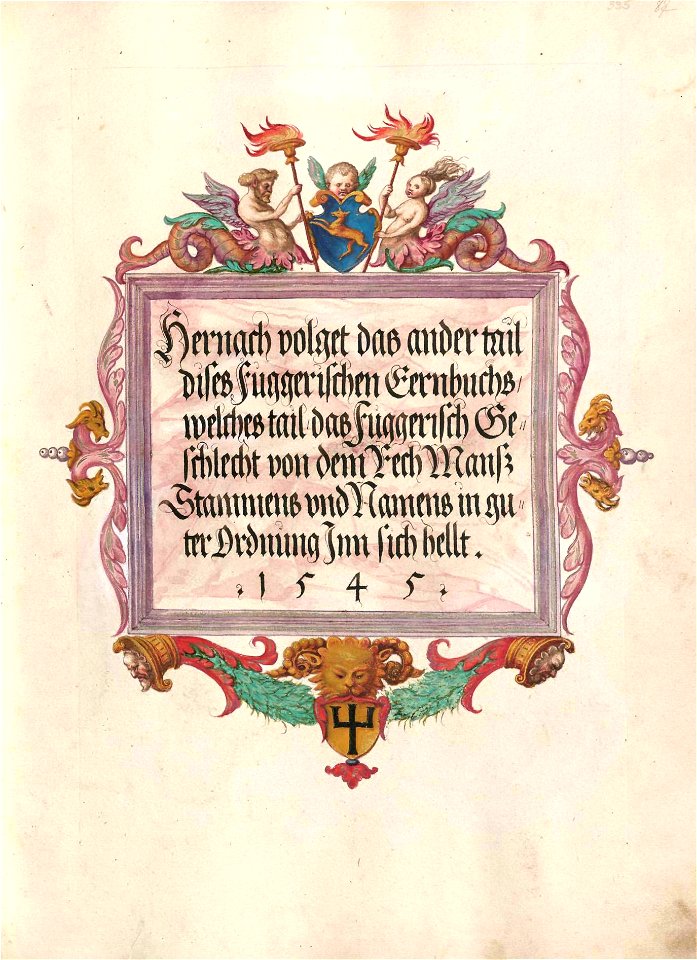 335 84
Hernach volget das ander tail
dises Fuggerischen Eernbuchs/
welches tail das Fuggerisch Ge⸗
schlecht von dem Rech Manß
Stammens vnd Namens in gu⸗
ter Ordnung Inn sich hellt.
· 1 5 4 5 ·